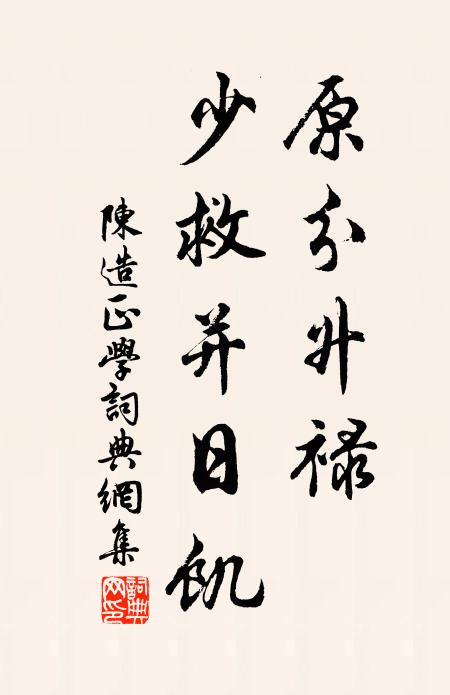 原分升祿
少救并日飢
陳造正學詞典網集
詞典網印